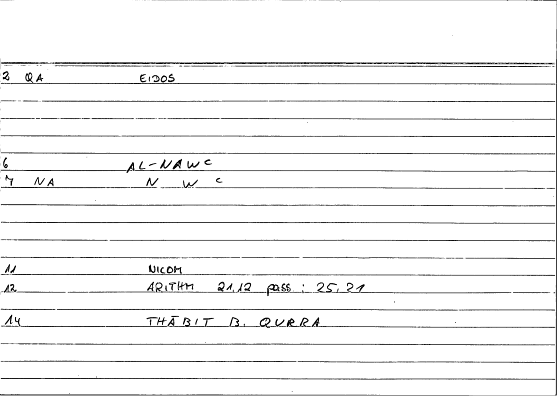 2 QA EIDOS
6 AL-NAWC
7 NA N W C
11 NICOM
12 ARITHM 21,12 pass : 25,21
14 THĀBIT B. QURRA